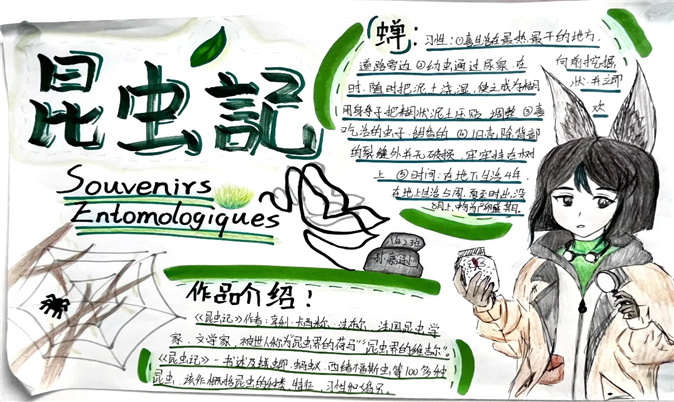 昆虫記
Souvenirs
Entomologiques
蝉：习性：①喜生活在最热最干的地方，
道路旁边 ②幼虫通过尿泉，在 向前挖掘
时，随时把泥土浇湿，使土成为糊 状，并立即
用身子把糊状泥土压贴，调整 ③喜 欢
吃活的虫子，
的裂缝外并无破损，牢牢挂在树
上 ⑤时间：在地下生活4年，
在地上生活5周，
作品介绍！
《昆虫记》作者：卡西米尔·法布尔，法国昆虫学
家、文学家，被世人称为“昆虫界的荷马”“昆虫界的维吉尔”。
《昆虫记》一书述及蜣螂、蚂蚁、西绪福斯虫等100多种
昆虫，该作概括昆虫的种类、特征、习性和